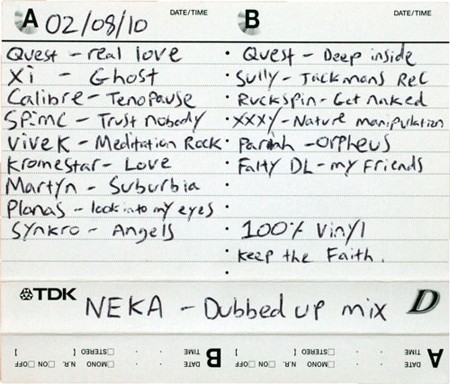 A 02/08/10 DATE/TIME
Quest - real love
Xi - Ghost
Calibre - Tenopause
SPMC - Trust nobody
Vivek - Meditation Rock
Kromestar - Love
Martyn - Suburbia
Planas - look into my eyes
Synkro - Angels
B DATE/TIME
Quest - Deep inside
Sully - Jackmans Rec
Ruckspin - Get naked
XXXY - Nature manipulation
pariah - Orpheus
Falty DL - my Friends
100% Vinyl
keep the Faith.
TDK NEKA - Dubbed up mix D
A DATE TIME MONO STEREO N.R. ON OFF
B DATE TIME MONO STEREO N.R. ON OFF